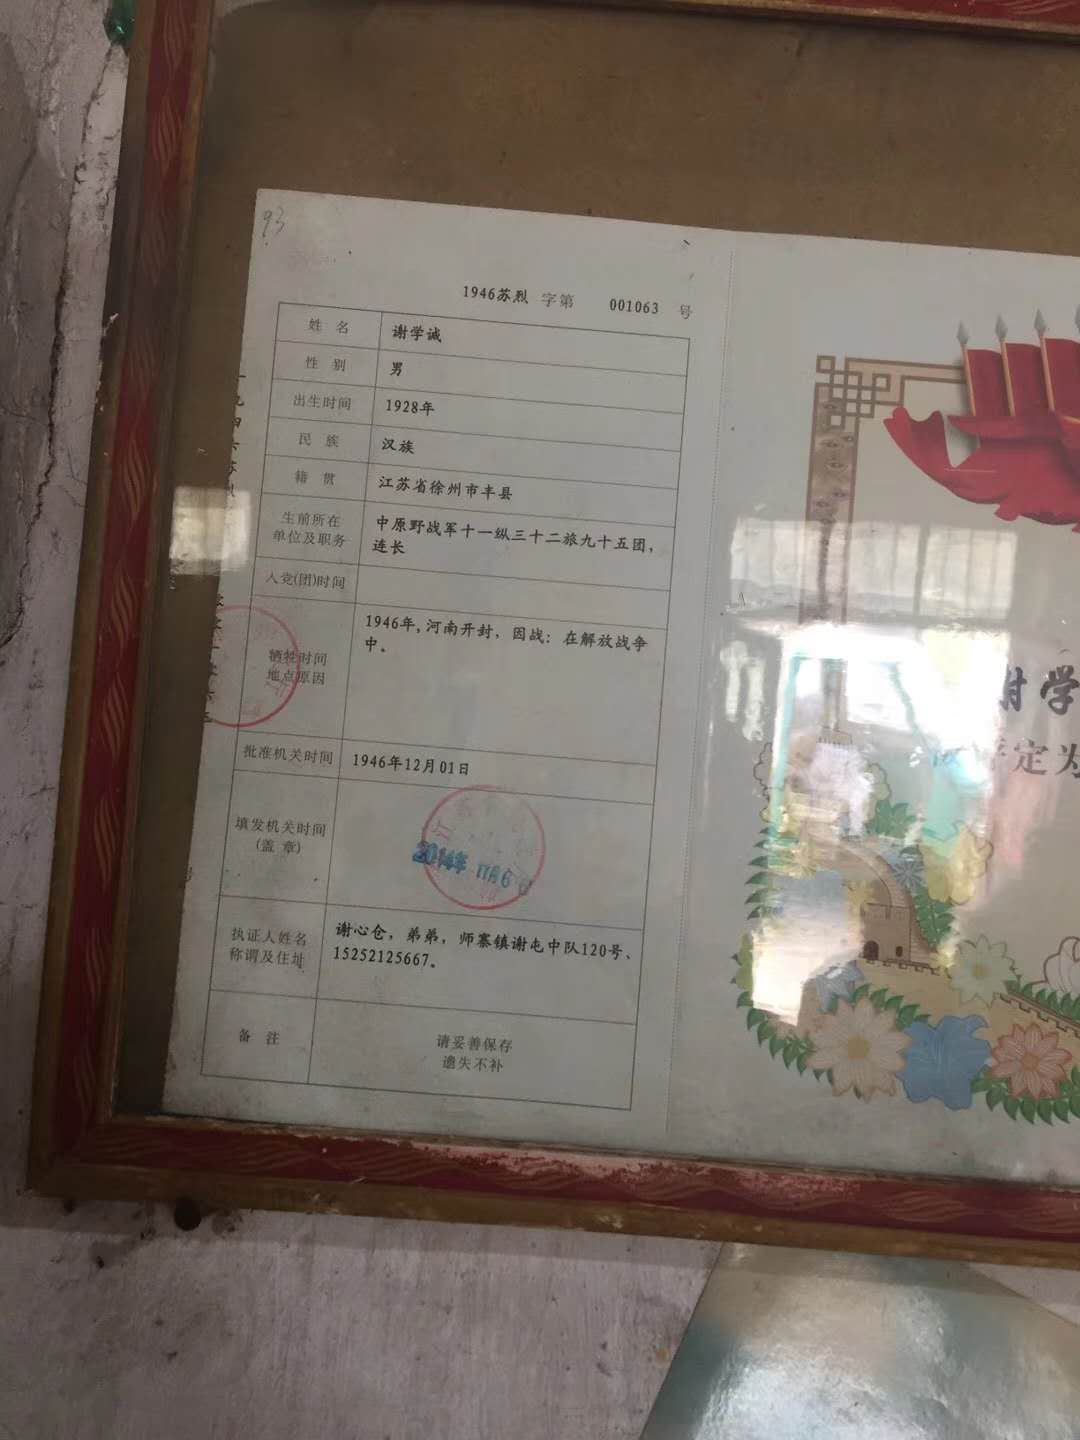 93
1946苏烈 字第 001063 号
姓 名 谢学诚
性 别 男
出生时间 1928年
民 族 汉族
籍 贯 江苏省徐州市丰县
生前所在
单位及职务
中原野战军十一纵三十二旅九十五团，
连长
入党(团)时间
牺牲时间
地点原因
1946年，河南开封，因战：在解放战争
中。
批准机关时间 1946年12月01日
填发机关时间
(盖 章)
2014年 11月6日
执证人姓名
称谓及住址
谢心仓，弟弟，师寨镇谢屯中队120号、
15252125667。
备 注
请妥善保存
遗失不补
谢学
评定为